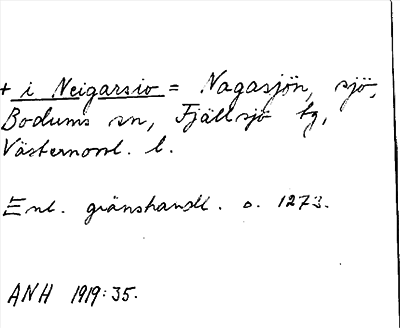 + i Neigarsio = Nagasjön, sjö,
Bodums sn, Fjällsjö tg,
Västernorrl. l.
Enl. gränshandl. o. 1273.
ANH 1919:35.